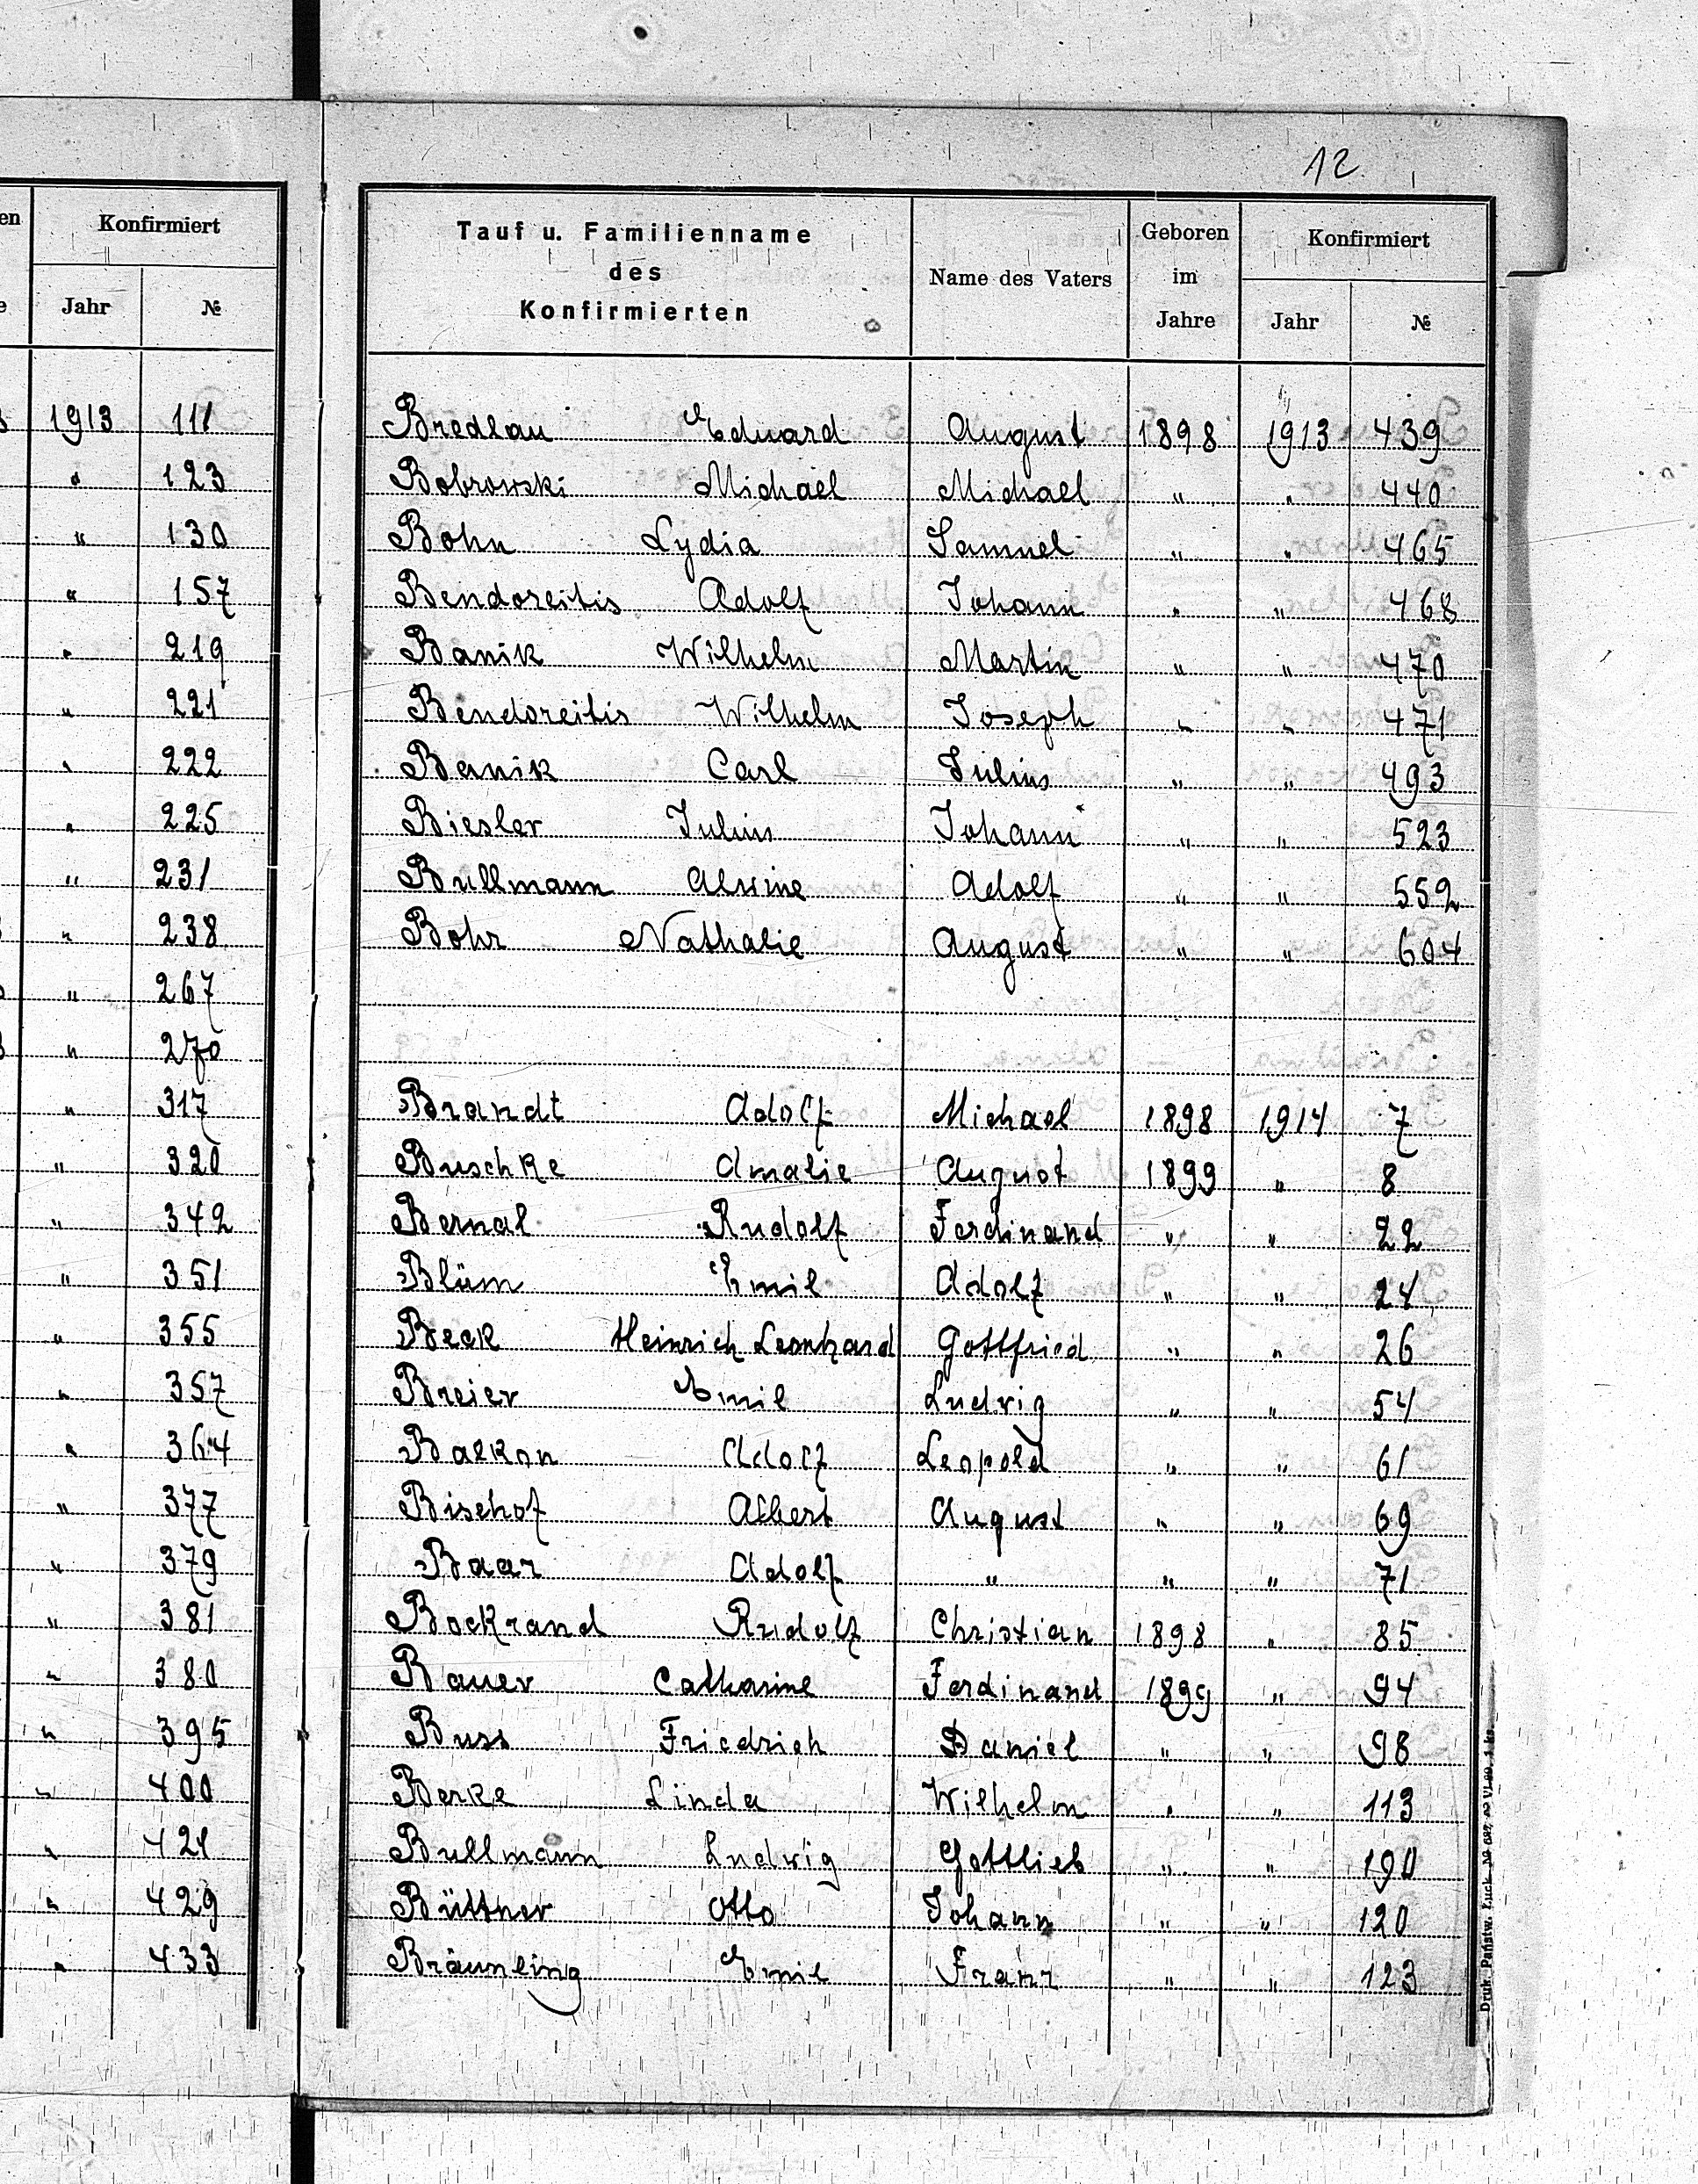 12
en Konfirmiert
e Jahr №
1913 111
" 123
" 130
" 157
" 219
" 221
" 222
" 225
" 231
" 238
" 267
" 270
" 317
" 320
" 342
" 351
" 355
" 357
" 364
" 377
" 379
" 381
" 380
" 395
" 400
" 421
" 429
" 433
Tauf u. Familienname
des
Konfirmierten
Name des Vaters
Geboren
im
Jahre
Konfirmiert
Jahr №
Bredlau Eduard August 1898 1913 439
Bobrowski Michael Michael " " 440
Bohn Lydia Samuel " " 465
Bendoreitis Adolf Johann " " 468
Banik Wilhelm Martin " " 470
Bendoreitis Wilhelm Joseph " " 471
Banik Carl Julius " " 493
Biesler Julius Johann " " 523
Bullmann Alwine Adolf " " 552
Bohr Nathalie August " " 604
Brandt Adolf Michael 1898 1914 7
Buschke Amalie August 1899 " 8
Bernal Rudolf Ferdinand " " 22
Blüm Emil Adolf " " 24
Beck Heinrich Leonhard Gottfried " " 26
Breier Emil Ludwig " " 54
Balkon Adolf Leopold " " 61
Bischof Albert August " " 69
Baar Adolf " " " 71
Bockrand Rudolf Christian 1898 " 85
Bauer Catharine Ferdinand 1899 " 94
Buss Friedrich Daniel " " 98
Berke Linda Wilhelm " " 113
Bullmann Ludwig Gottlieb " " 190
Büttner Otto Johann " " 120
Bräunling Emil Franz " " 123
Druk. Państw. Łuck